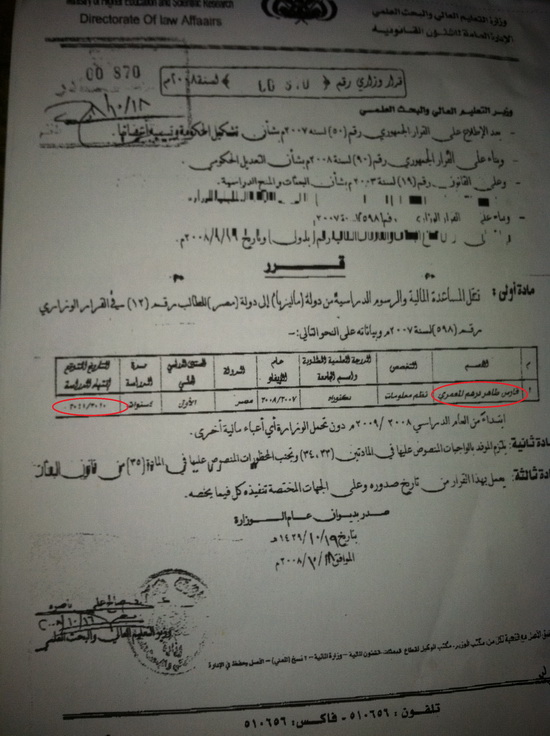 Ministry of Higher Education and Scientific Research
Directorate Of law Affairs
وزارة التعليم العالي والبحث العلمي
الإدارة العامة للشئون القانونية
00870
قرار وزاري رقم ( ) لسنة ٢٠٠٨م
وزير التعليم العالي والبحث العلمي
- بعد الإطلاع على القرار الجمهوري رقم (٥٠) لسنة ٢٠٠٧م بشأن تشكيل الحكومة وتسمية أعضائها.
- وبناء على القرار الجمهوري رقم (٩٠) لسنة ٢٠٠٨م بشأن التعديل الحكومي.
- وعلى القانون رقم (١٩) لسنة ٢٠٠٣م بشأن البعثات والمنح الدراسية.
- وبناء على القرار الوزاري رقم (٥٩٨) لسنة ٢٠٠٧م
وتاريخ ٢٠٠٨/٩/١٦م.
قــــرر
مادة أولى: تنقل المساعدة المالية والرسوم الدراسية من دولة (ماليزيا) إلى دولة (مصر) للطالب رقم (١٢) في القرار الوزاري
رقم (٥٩٨) لسنة ٢٠٠٧م وبياناته على النحو التالي:-
م الاسم التخصص الدرجة العلمية المطلوبة واسم الجامعة عام الإيفاد الدولة المستوى الدراسي الحالي مدة الدراسة التاريخ المتوقع لانتهاء الدراسة
١ فارس طاهر درهم المعمري نظم معلومات دكتوراه ٢٠٠٨/٢٠٠٧ مصر الأول سنوات
إبتداءً من العام الدراسي ٢٠٠٨ / ٢٠٠٩م دون تحمل الوزارة أي أعباء مالية أخرى.
مادة ثانية: يلتزم الموفد بالواجبات المنصوص عليها في المادتين (٣٤،٣٣) وتجنب المحظورات المنصوص عليها في المادة (٣٥) من قانون البعثات
مادة ثالثة: يعمل بهذا القرار من تاريخ صدوره وعلى الجهات المختصة تنفيذه كل فيما يخصه.
صدر بديوان عام الوزارة
بتاريخ ١٤٢٩/١٠/١٩هـ
الموافق ٢٠٠٨/١٠/١٨م
وزير التعليم العالي والبحث العلمي
تلفون: ٥١٠٦٥٦ - فاكس: ٥١٠٦٥٦